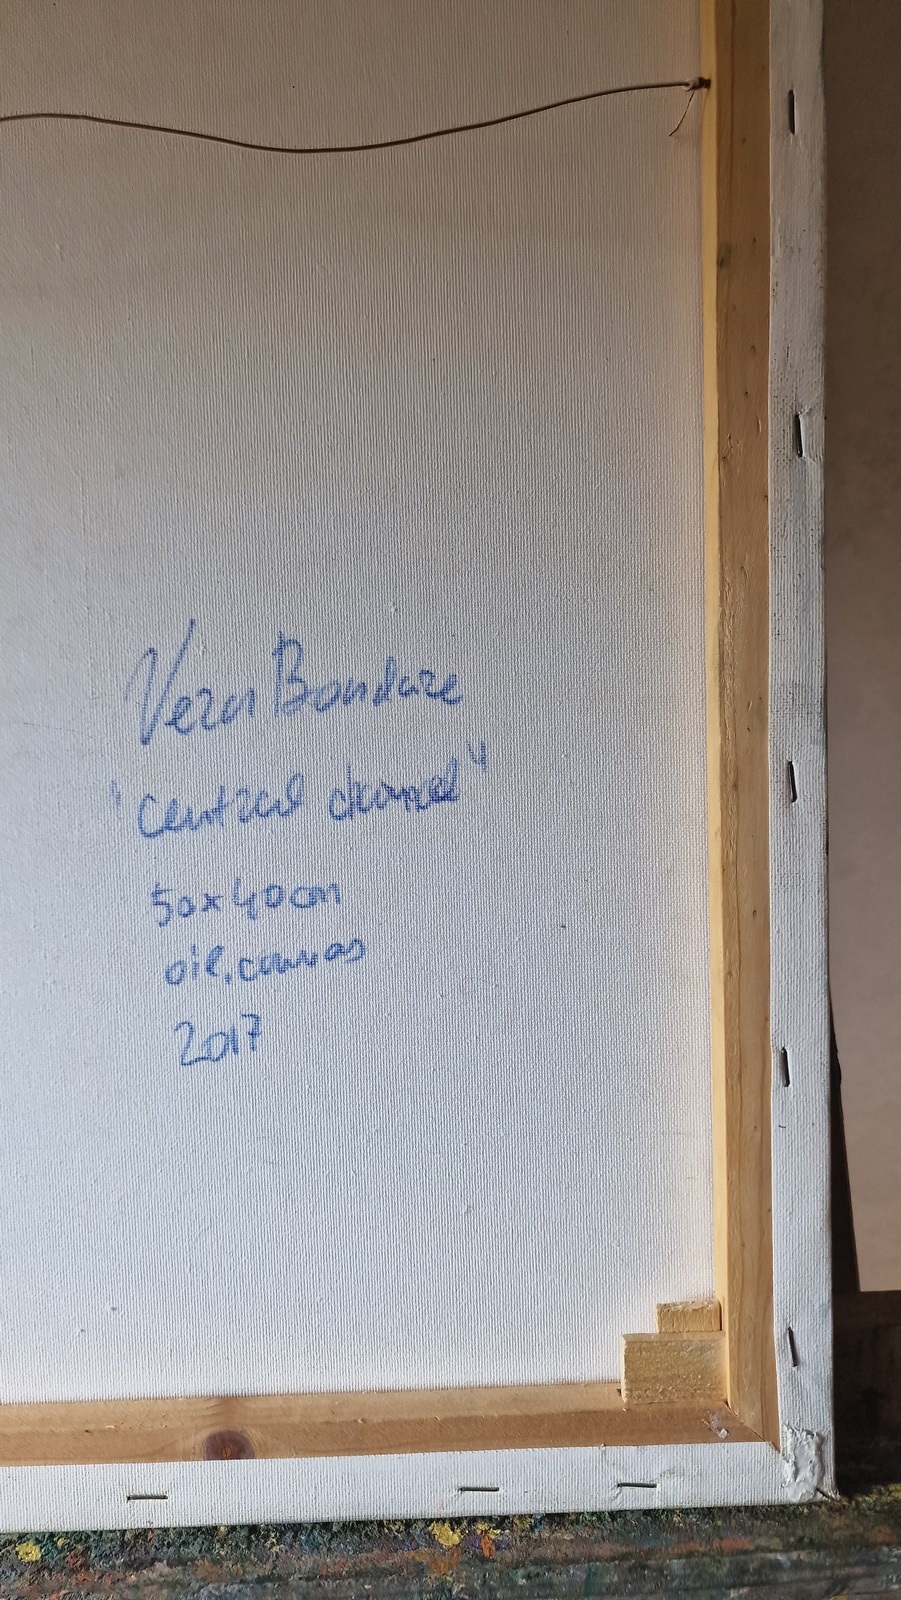 Vera Bondare
"Central channel"
50x40cm
oil, canvas
2017